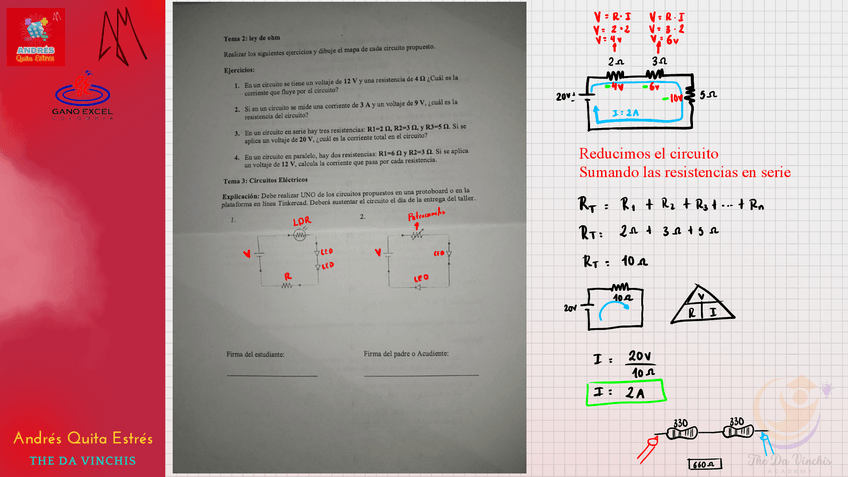 ANDRÉS
Quita Estrés
GANO EXCEL
Andrés Quita Estrés
THE DA VINCHIS
Tema 2: ley de ohm
Realizar los siguientes ejercicios y dibuje el mapa de cada circuito propuesto.
Ejercicios:
1. En un circuito se tiene un voltaje de 12 V y una resistencia de 4 Ω ¿Cuál es la
corriente que fluye por el circuito?
2. Si en un circuito se mide una corriente de 3 A y un voltaje de 9 V, ¿cuál es la
resistencia del circuito?
3. En un circuito en serie hay tres resistencias: R1=2 Ω, R2=3 Ω, y R3=5 Ω. Si se
aplica un voltaje de 20 V, ¿cuál es la corriente total en el circuito?
4. En un circuito en paralelo, hay dos resistencias: R1=6 Ω y R2=3 Ω. Si se aplica
un voltaje de 12 V, calcula la corriente que pasa por cada resistencia.
Tema 3: Circuitos Eléctricos
Explicación: Debe realizar UNO de los circuitos propuestos en una protoboard o en la
plataforma en línea Tinkercad. Deberá sustentar el circuito el día de la entrega del taller.
1.
LDR
V
LED
LED
R
2.
Potenciometro
V
LED
LED
Firma del estudiante:
Firma del padre o Acudiente:
V = R · I
V = 2 · 2
V = 4v
V = R · I
V = 3 · 2
V = 6v
2Ω
3Ω
20V
-4V
-6v
-10v
5Ω
I: 2A
Reducimos el circuito
Sumando las resistencias en serie
RT = R1 + R2 + R3 + ... + Rn
RT: 2Ω + 3Ω + 5Ω
RT = 10Ω
20V
10Ω
V
R I
I: 20V
10Ω
I: 2A
330
330
660Ω
The Da Vinchis
ACADEMY